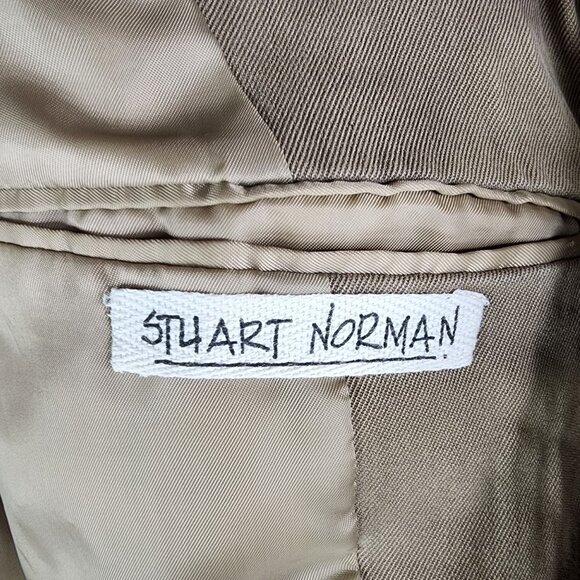 STUART NORMAN